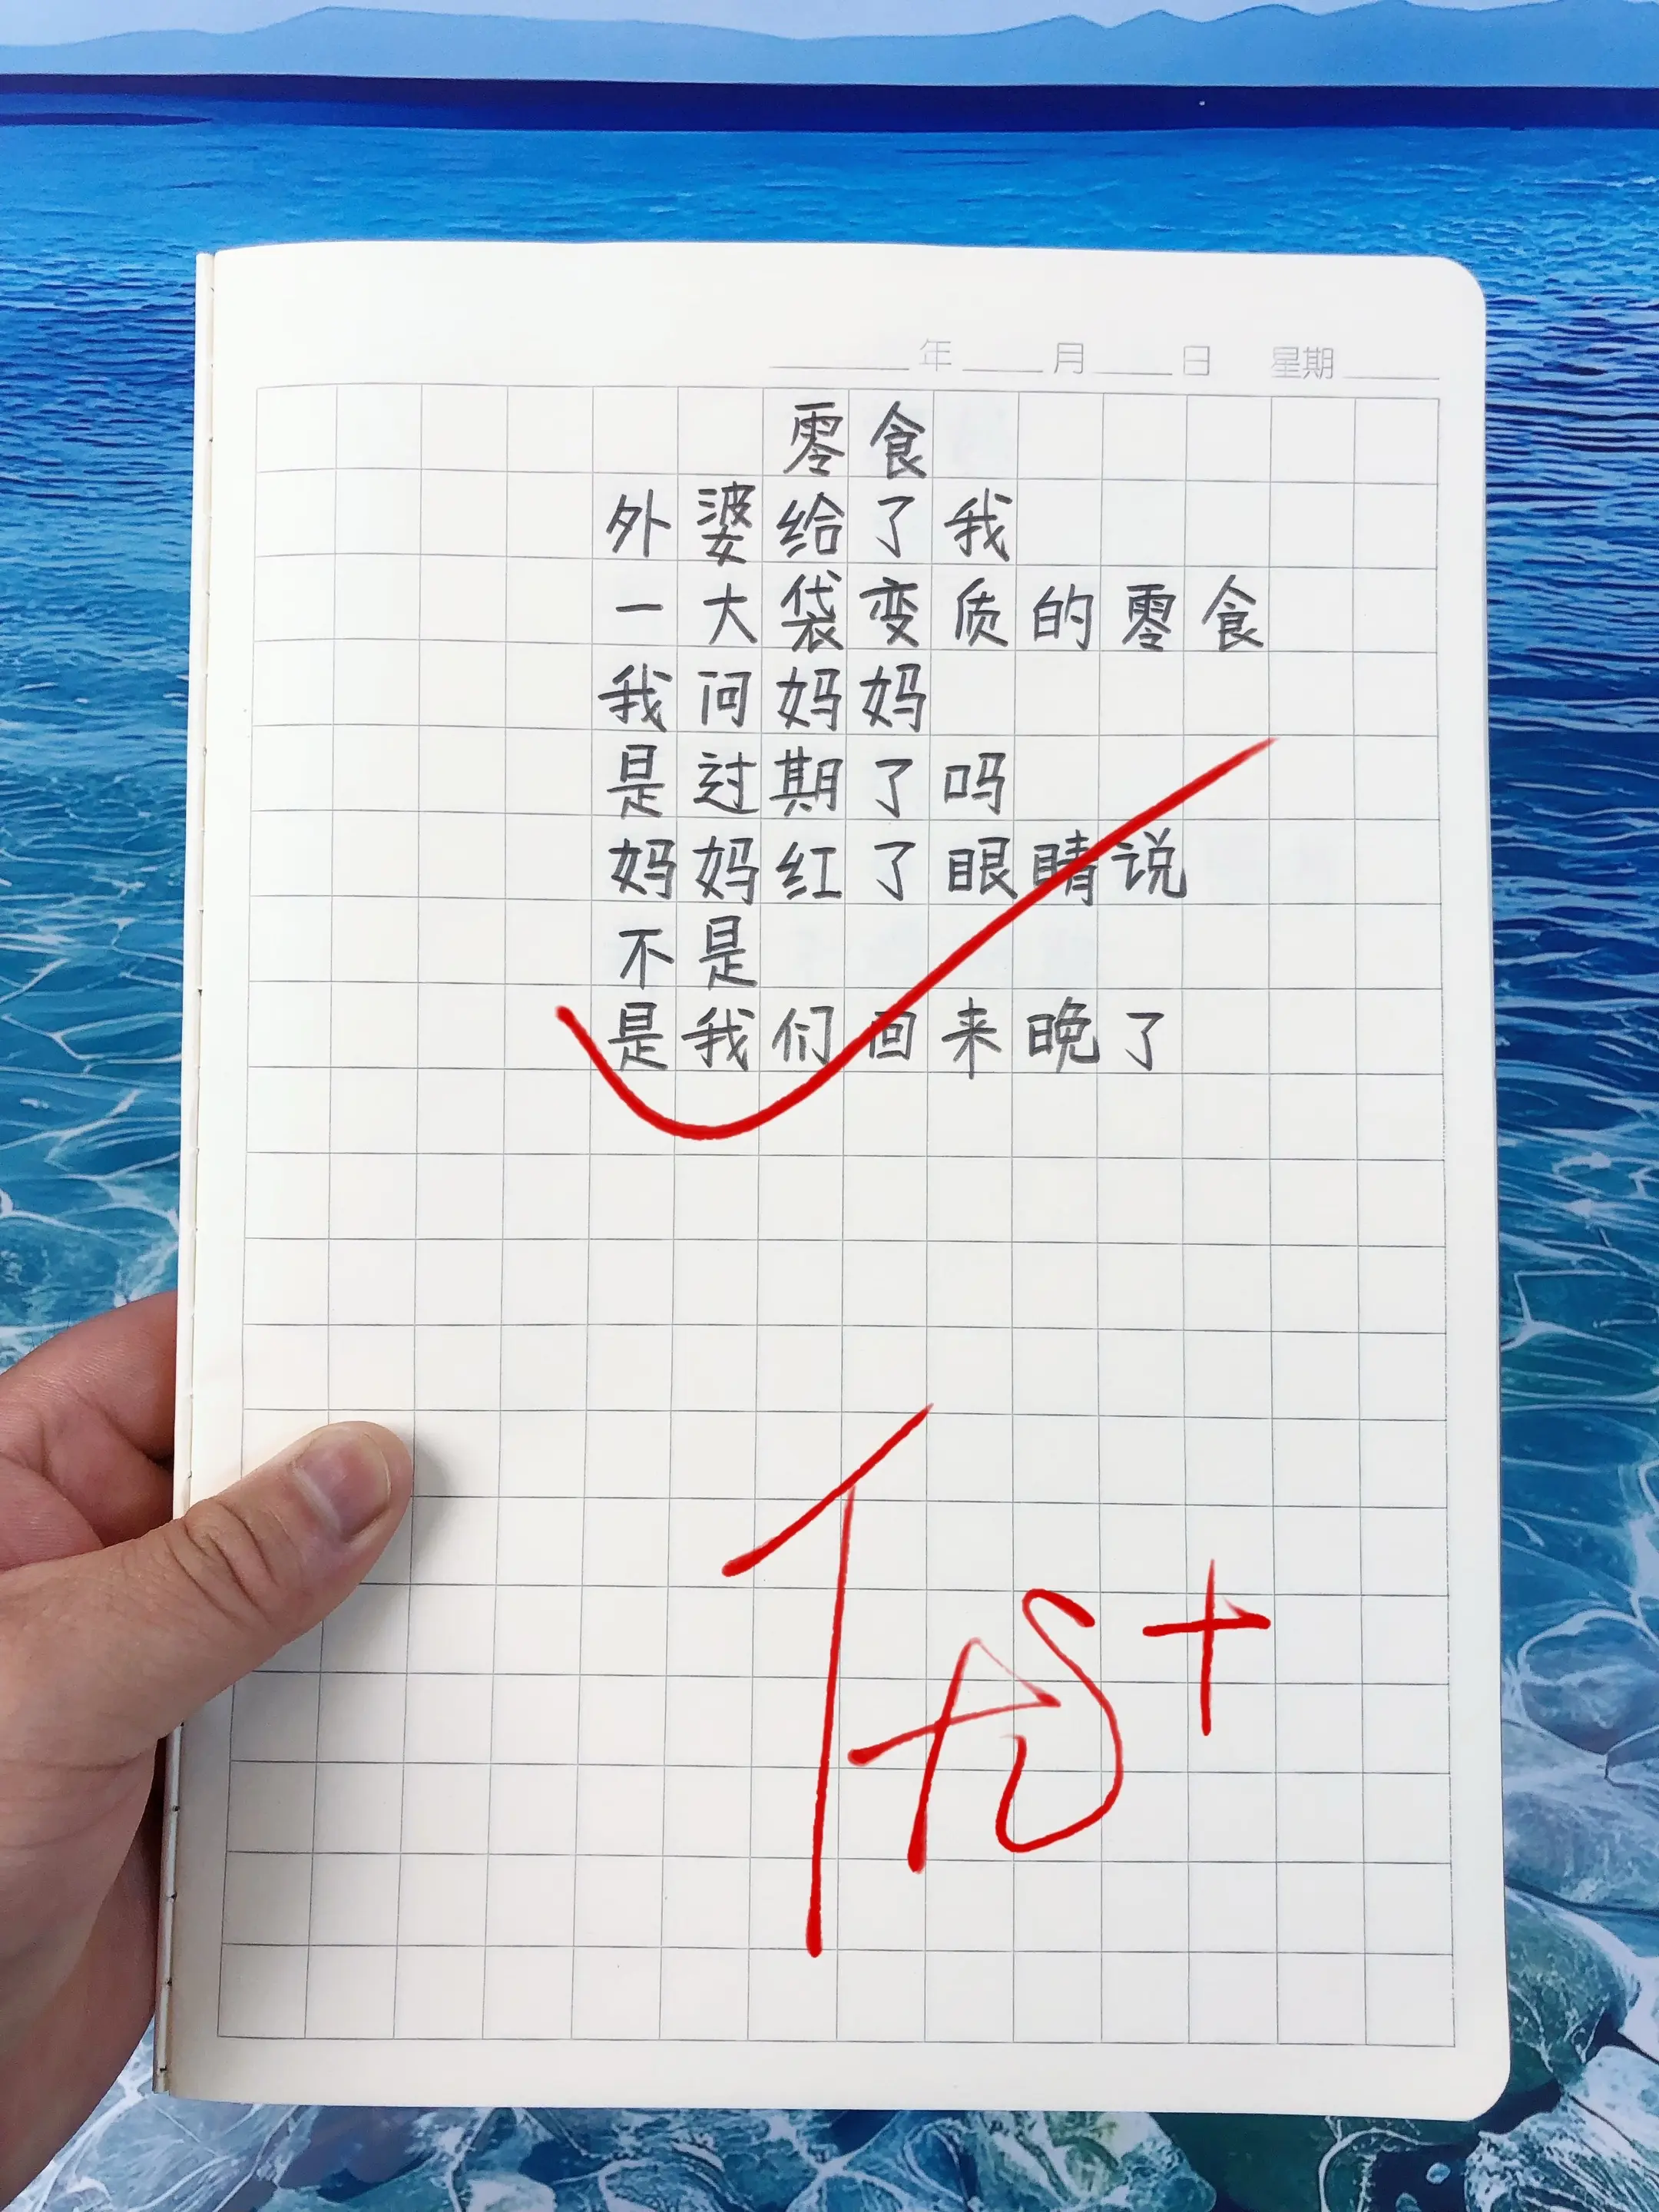 年 月 日 星期
零食
外婆给了我
一大袋变质的零食
我问妈妈
是过期了吗
妈妈红了眼睛说
不是
是我们回来晚了